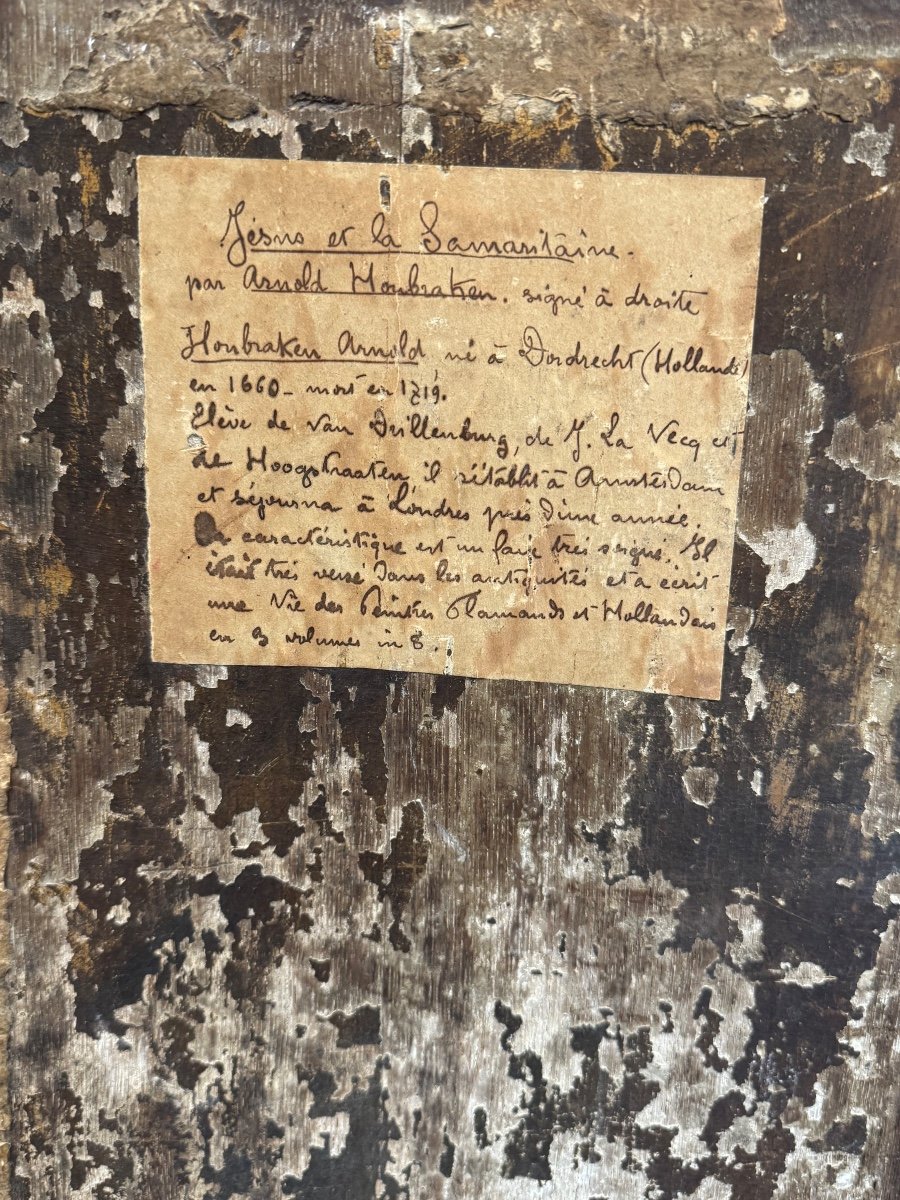 Jésus et la Samaritaine.
par Arnold Houbraken. signé à droite
Houbraken Arnold né à Dordrecht (Hollande)
en 1660 - mort en 1719.
Elève de van Drillenburg, de J. La Vecq et
de Hoogstraaten, il s'établit à Amsterdam
et séjourna à Londres près d'une année.
caractéristique est un faire très soigné. Il
était très versé dans les antiquités et a écrit
une Vie des Peintres Flamands et Hollandais
en 3 volumes in 8.